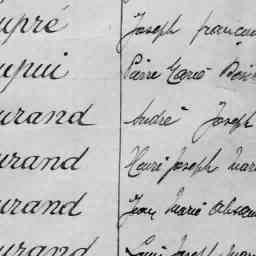 upré Joseph françoi
upui Pierre Marie Ben
urand André Joseph
urand Henri Joseph Mar
urand Jean Marie Alexan
urand Louis Joseph Mar